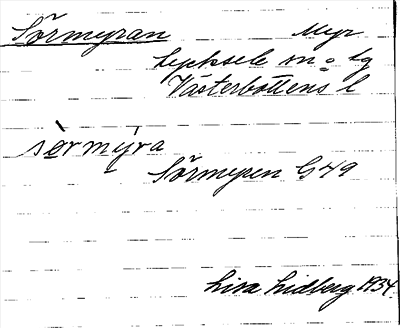 Sörmyran Myr
Lycksele sn o tg
Västerbottens l
sørmýra
Sörmyran G49
Lisa Lidberg 1934.